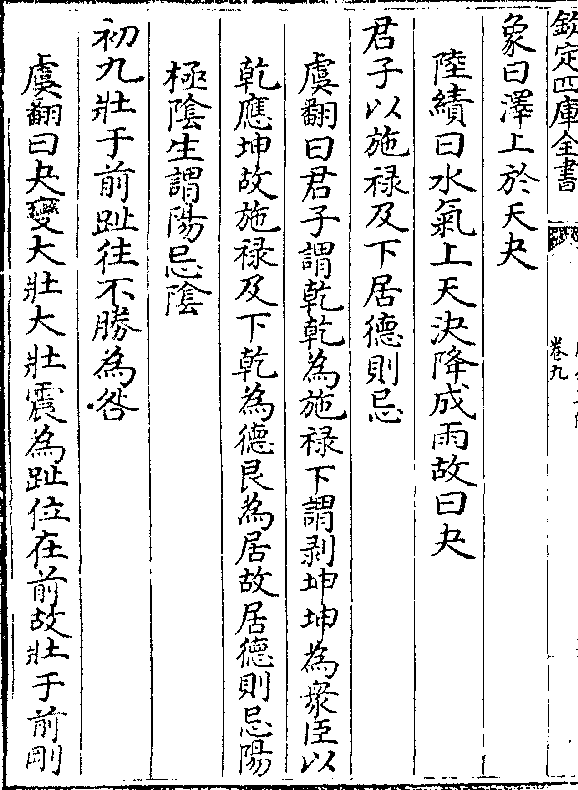 欽定四庫全書
卷九
象曰澤上於天夬
陸績曰水氣上天決降成雨故曰夬
君子以施禄及下居德則忌
虞翻曰君子謂乾乾為施禄下謂剥坤坤為衆臣以
乾應坤故施禄及下乾為德艮為居故居德則忌陽
極隂生謂陽忌隂
初九壯于前趾往不勝為咎
虞翻曰夬變大壯大壯震為趾位在前故壯于前剛